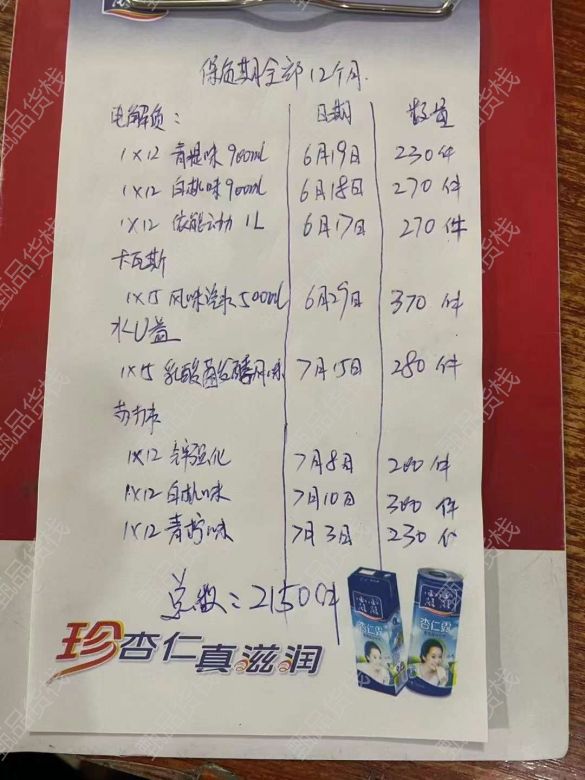 保质期全部12个月.
电解质: 日期 数量
1×12 青提味 900mL 6月19日 230件
1×12 白桃味 900mL 6月18日 270件
1×12 依能运动 1L 6月17日 270件
卡瓦斯
1×15 风味汽水 500mL 6月29日 370件
水U益
1×15 乳酸菌发酵风味 7月15日 280件
苏打水
1×12 锌强化 7月8日 200件
1×12 白桃味 7月10日 300件
1×12 青柠味 7月3日 230件
总数:2150件
珍杏仁真滋润
杏仁露
杏仁露
甄品货栈